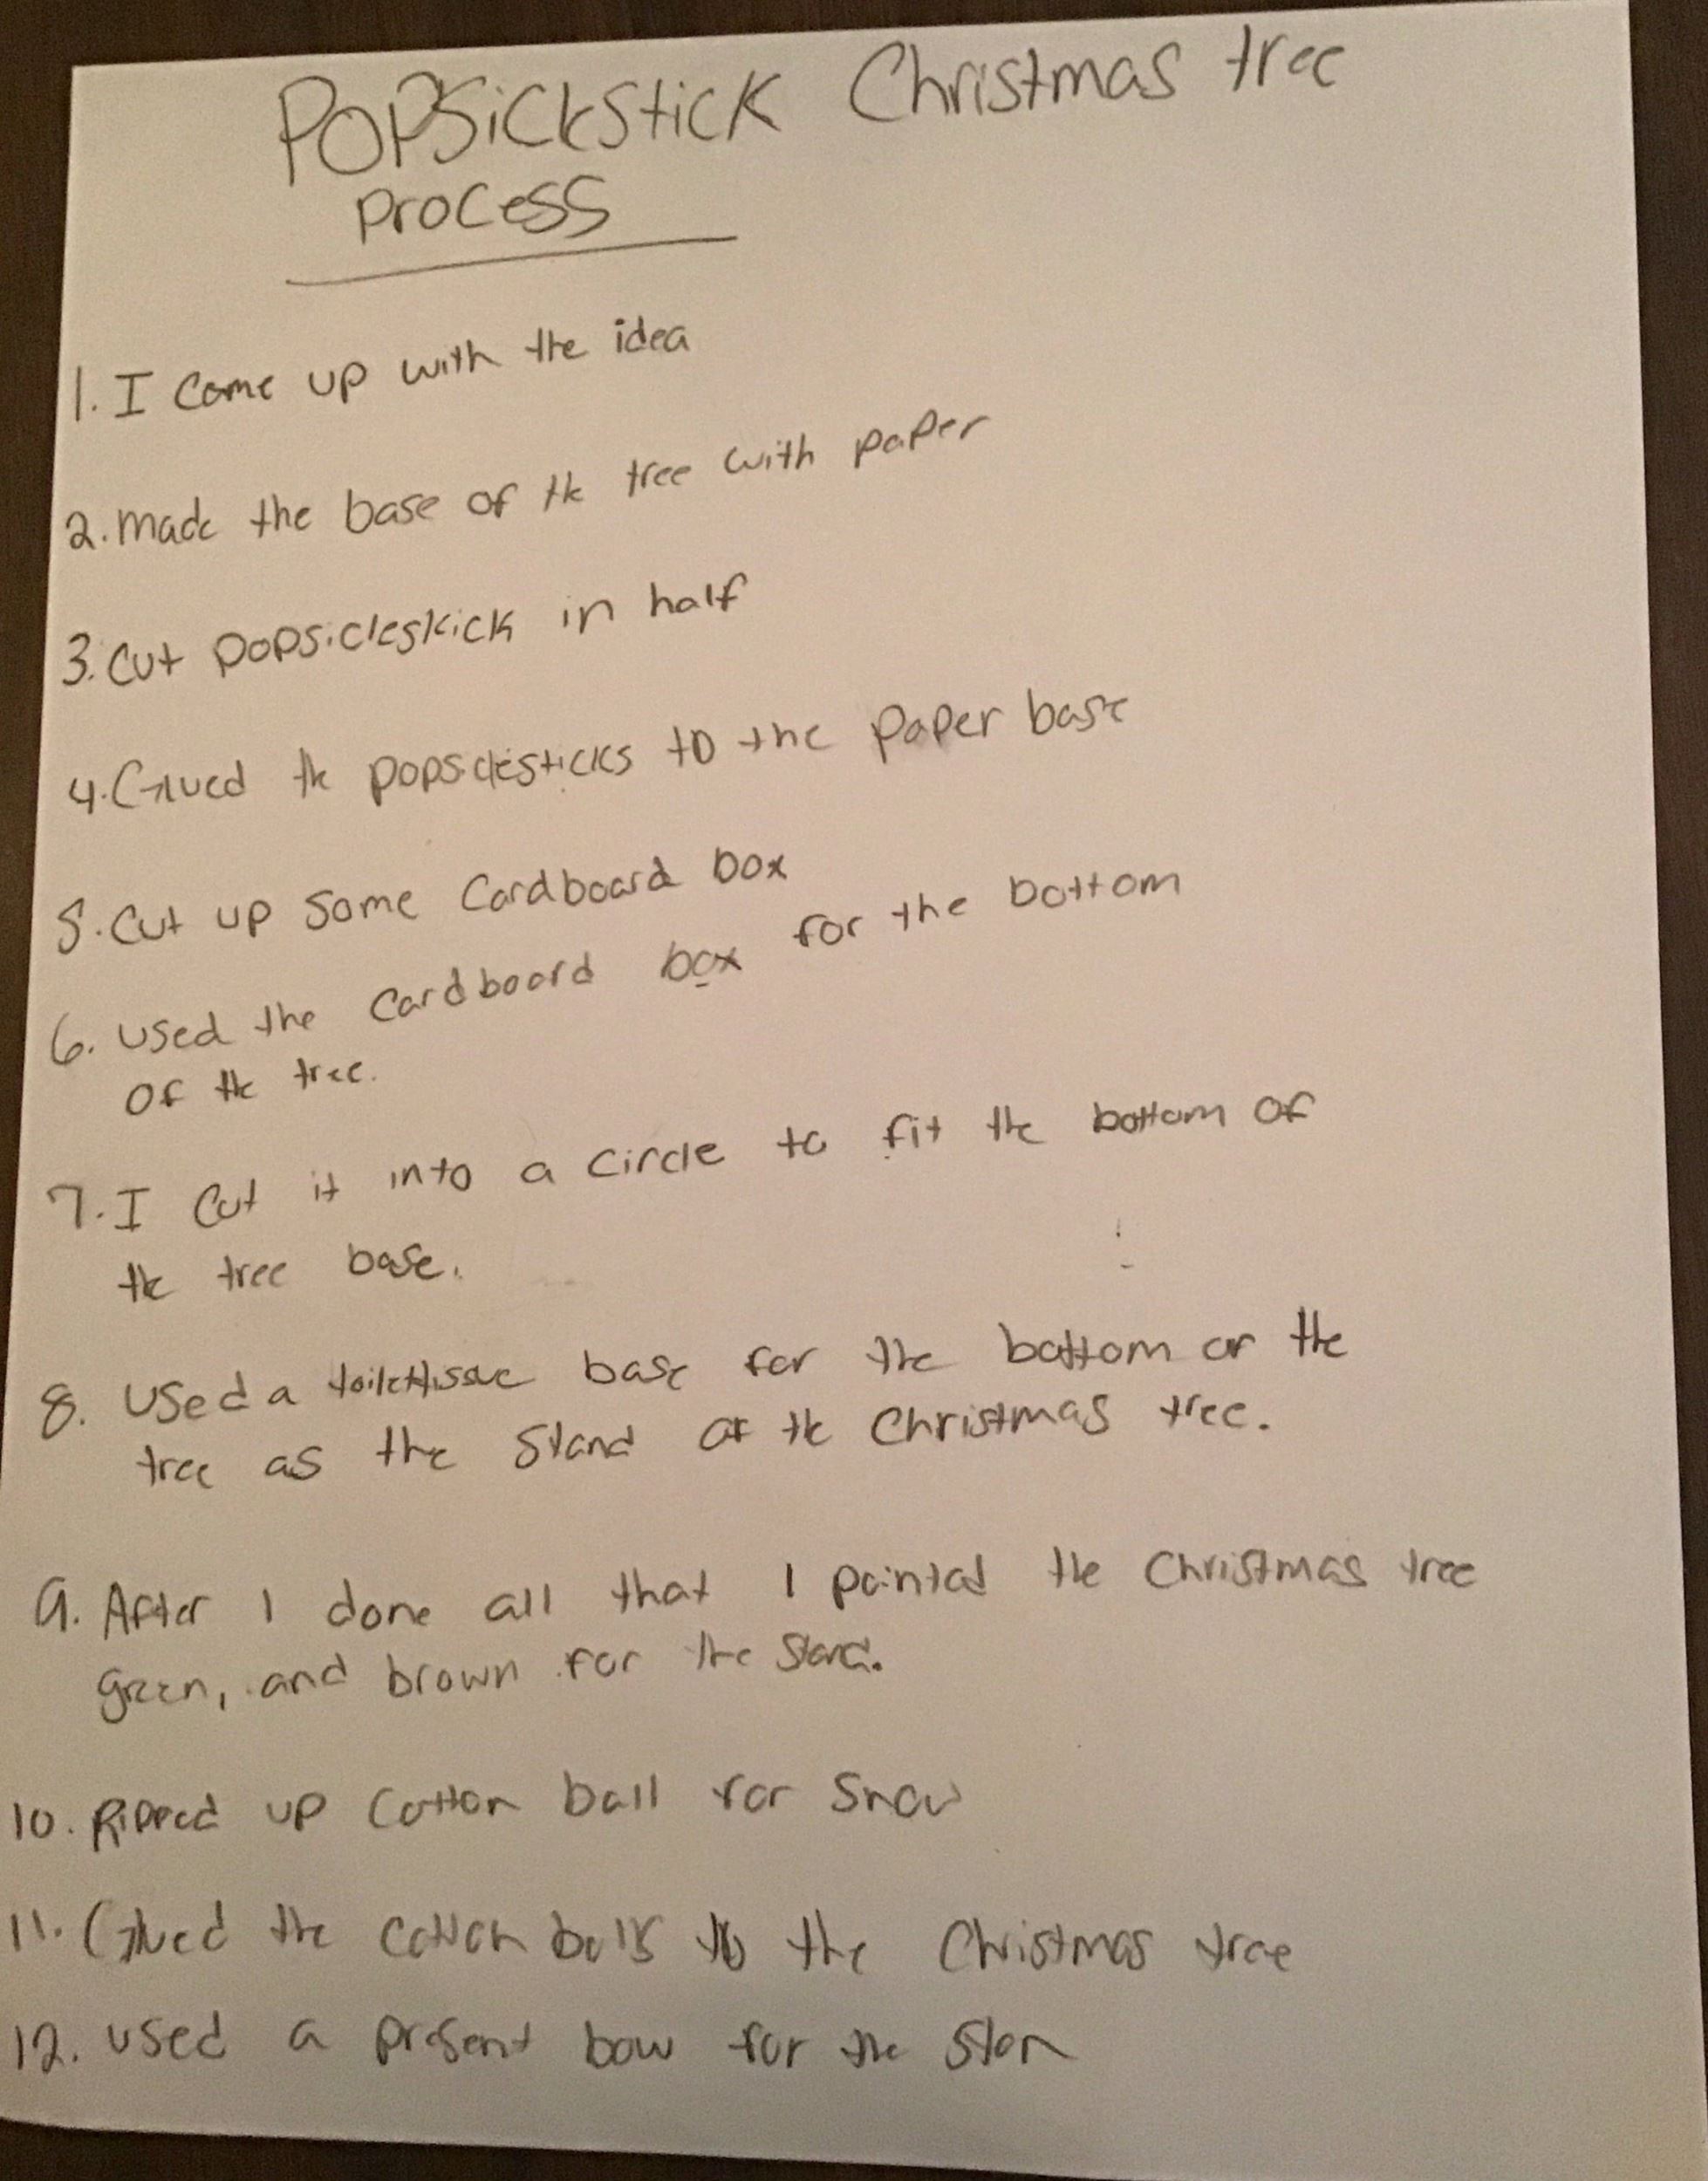 POPSickstick Christmas tree
process
1. I came up with the idea
2. made the base of the tree with paper
3. Cut popsicleskick in half
4. Glued the popsiclesticks to the paper base
5. Cut up some Cardboard box
6. used the cardboard box for the bottom
of the tree.
7. I cut it into a circle to fit the bottom of
the tree base.
8. Used a toilettissue base for the bottom or the
tree as the Stand of the Christmas tree.
9. After I done all that I painted the Christmas tree
green, and brown for the stand.
10. Ripped up cotton ball for snow
11. Glued the cotton balls to the Christmas tree
12. used a present bow for the star